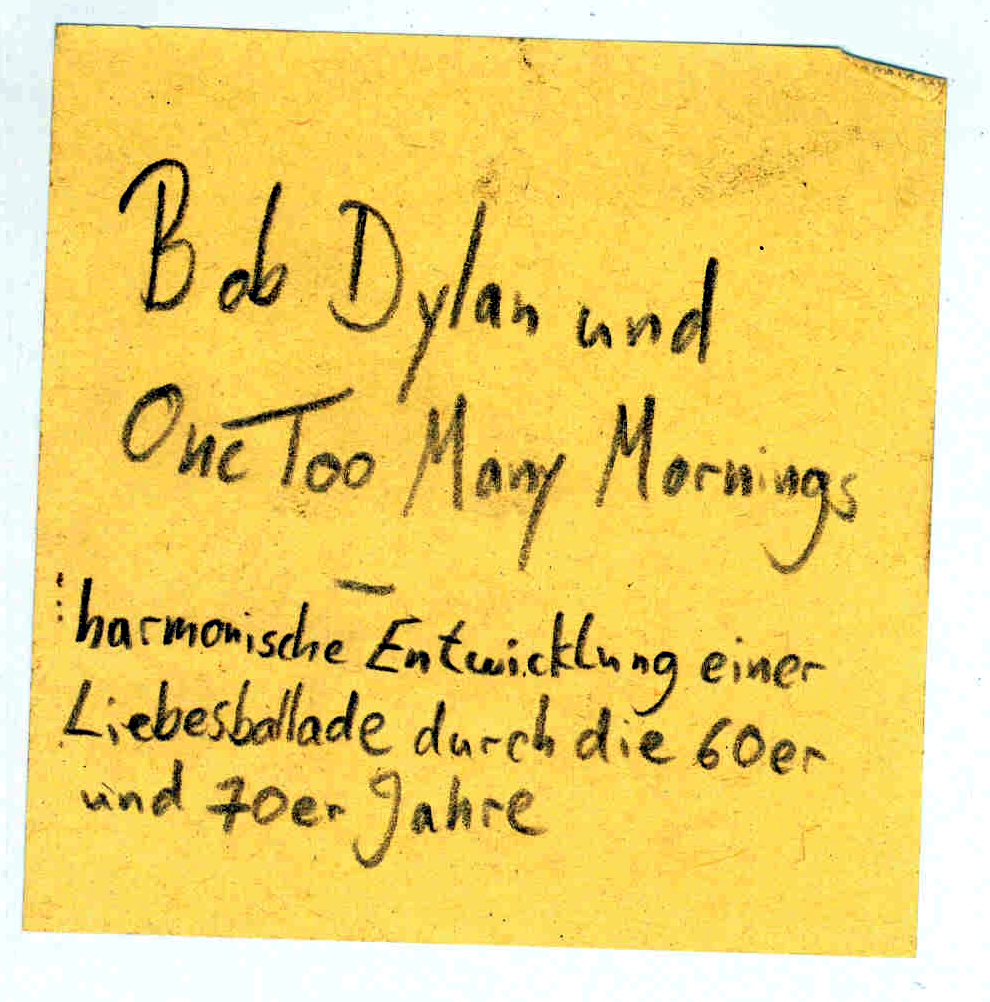 Bob Dylan und
One Too Many Mornings
–
harmonische Entwicklung einer
Liebesballade durch die 60er
und 70er Jahre